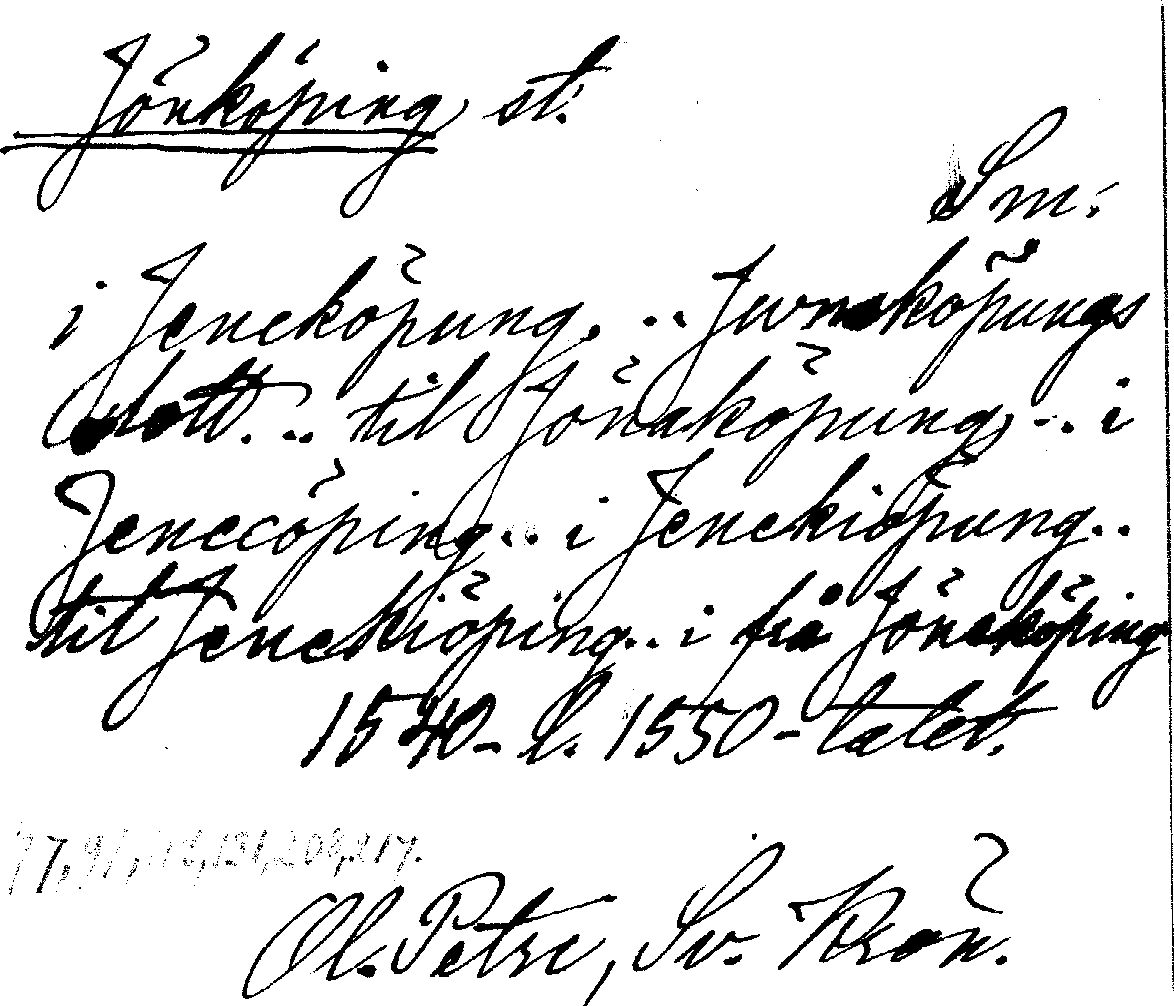 Jönköping, st:
Sm:
i Jeneköpung. .. Junaköpungs
slott. .. til Jönaköpung, -.. i
Jenecöping... i Jenekiöpung..
til Jenekiöping... i frå Jöneköping
1540- l. 1550-talet.
77, 91, 131, 208, 217.
Ol. Petre, Sv. Krön.